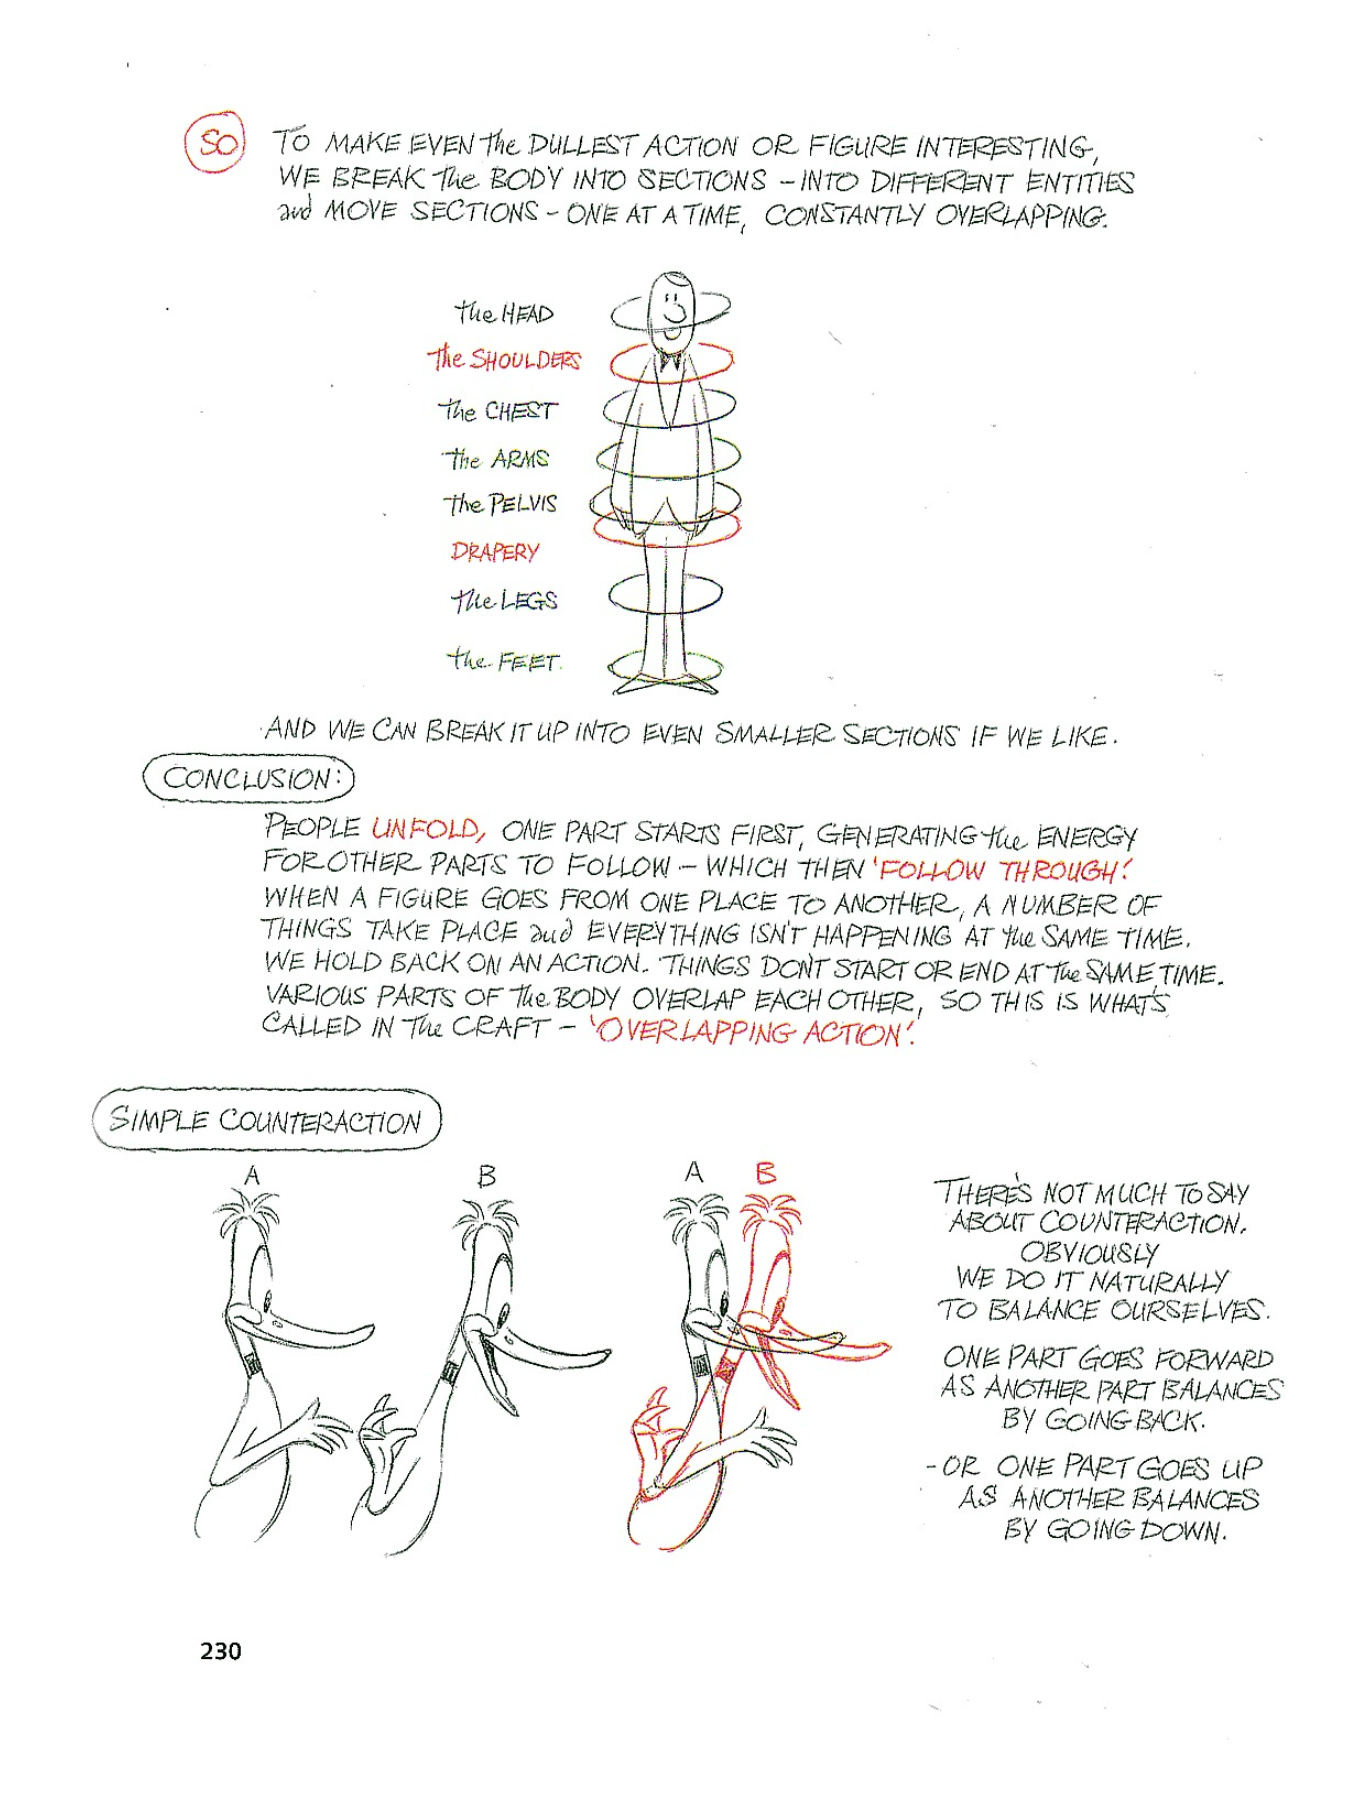 SO TO MAKE EVEN the DULLEST ACTION OR FIGURE INTERESTING,
WE BREAK the BODY INTO SECTIONS – INTO DIFFERENT ENTITIES
and MOVE SECTIONS – ONE AT A TIME, CONSTANTLY OVERLAPPING.
the HEAD
the SHOULDERS
the CHEST
the ARMS
the PELVIS
DRAPERY
the LEGS
the FEET.
AND WE CAN BREAK IT UP INTO EVEN SMALLER SECTIONS IF WE LIKE.
CONCLUSION:
PEOPLE UNFOLD, ONE PART STARTS FIRST, GENERATING the ENERGY
FOR OTHER PARTS TO FOLLOW – WHICH THEN 'FOLLOW THROUGH'.
WHEN A FIGURE GOES FROM ONE PLACE TO ANOTHER, A NUMBER OF
THINGS TAKE PLACE and EVERYTHING ISN'T HAPPENING AT the SAME TIME.
WE HOLD BACK ON AN ACTION. THINGS DON'T START OR END AT the SAME TIME.
VARIOUS PARTS OF the BODY OVERLAP EACH OTHER, SO THIS IS WHAT'S
CALLED IN the CRAFT – 'OVERLAPPING ACTION'.
SIMPLE COUNTERACTION
A B A B
THERE'S NOT MUCH TO SAY
ABOUT COUNTERACTION.
OBVIOUSLY
WE DO IT NATURALLY
TO BALANCE OURSELVES.
ONE PART GOES FORWARD
AS ANOTHER PART BALANCES
BY GOING BACK.
- OR ONE PART GOES UP
AS ANOTHER BALANCES
BY GOING DOWN.
230